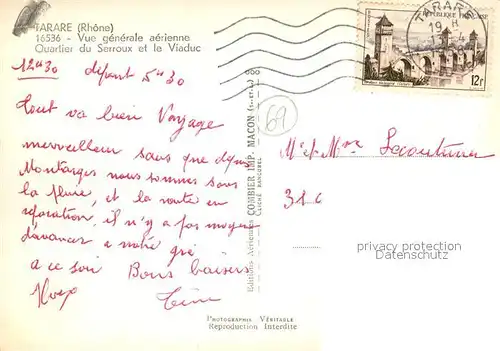 TARARE (Rhône)
16536 - Vue générale aérienne
Quartier du Serroux et le Viaduc
12h30 départ 5h30
Tout va bien Voyage
merveilleux sauf que depuis
Montargis nous sommes sous
la pluie, et la route en
réparation, il n'y a pas moyen
d'avancer a notre gré
a ce soir Bons baisers
Editions Aériennes COMBIER IMP. MACON (S.-et-L.)
CLICHÉ RANCUREL
PHOTOGRAPHIE VÉRITABLE
Reproduction Interdite
69
TARARE
RÉPUBLIQUE FRANÇAISE
12f
Mr et Mme
privacy protection
Datenschutz